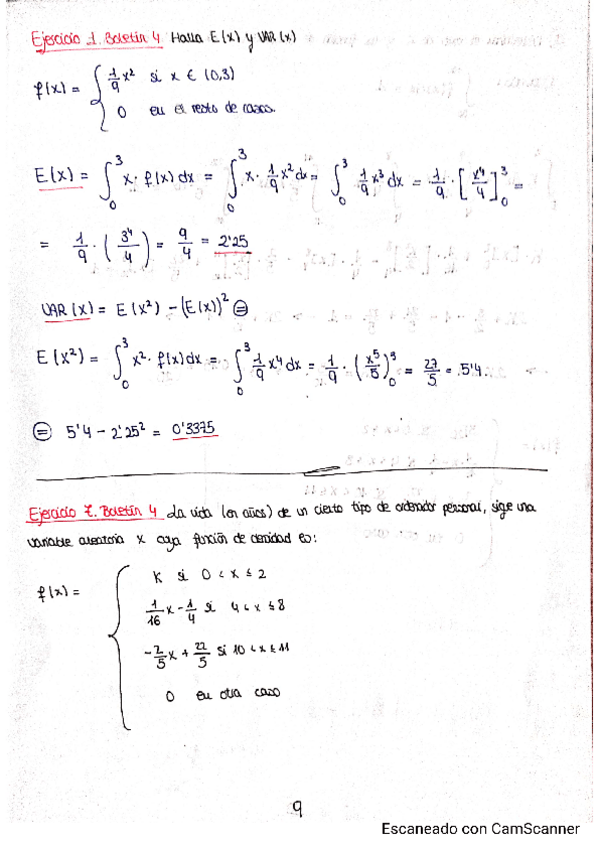 Ejercicio 1. Boletín 4 Halla E(x) y VAR(x)
f(x) = { 1/9 x² si x ∈ (0,3)
0 en el resto de casos.
E(x) = ∫₀³ x · f(x) dx = ∫₀³ x · 1/9 x² dx = ∫₀³ 1/9 x³ dx = 1/9 · [x⁴/4]₀³ =
= 1/9 · (3⁴/4) = 9/4 = 2'25
VAR(x) = E(x²) - (E(x))² ⊜
E(x²) = ∫₀³ x² · f(x) dx = ∫₀³ 1/9 x⁴ dx = 1/9 · (x⁵/5)₀³ = 27/5 = 5'4
⊜ 5'4 - 2'25² = 0'3375
Ejercicio 7. Boletín 4 La vida (en años) de un cierto tipo de ordenador personal, sige una
variable aleatoria x cuya función de densidad es:
f(x) = { K si 0 < x ≤ 2
1/16 x - 1/4 si 4 < x ≤ 8
-2/5 x + 22/5 si 10 < x ≤ 11
0 en otra caso
9
Escaneado con CamScanner